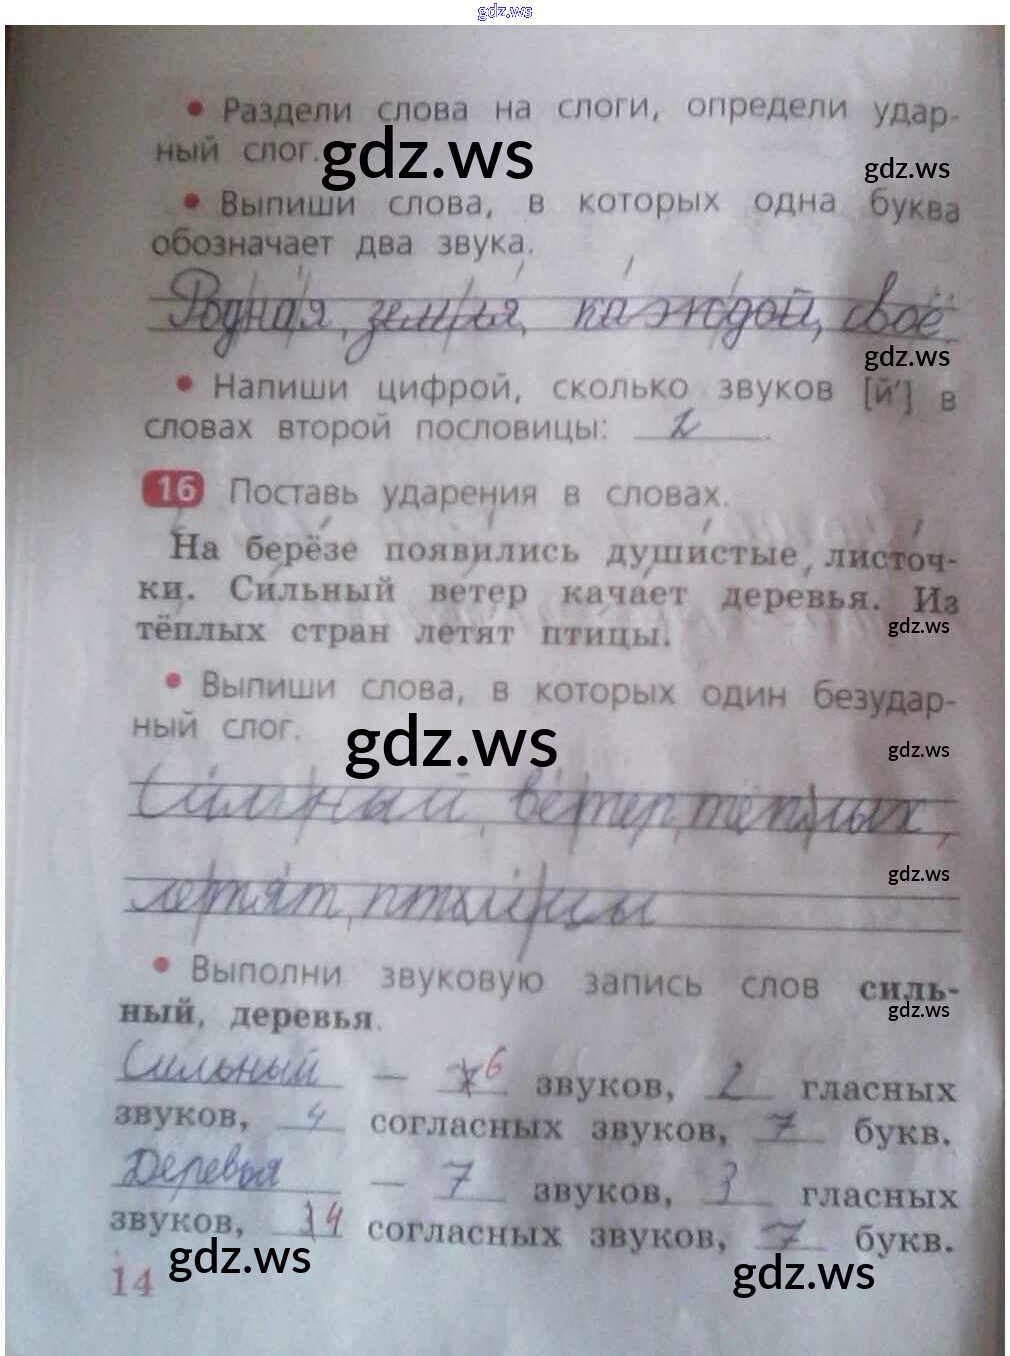 gdz.ws
• Раздели слова на слоги, определи удар-
ный слог.
gdz.ws
gdz.ws
• Выпиши слова, в которых одна буква
обозначает два звука.
Родная, земля, каждой, своё.
gdz.ws
• Напиши цифрой, сколько звуков [й'] в
словах второй пословицы: 2.
16 Поставь ударения в словах.
На берёзе появились душистые листоч-
ки. Сильный ветер качает деревья. Из
тёплых стран летят птицы.
gdz.ws
• Выпиши слова, в которых один безудар-
ный слог.
gdz.ws
gdz.ws
Сильный, ветер, тёплых,
gdz.ws
летят, птицы
• Выполни звуковую запись слов силь-
ный, деревья.
gdz.ws
Сильный — 6 звуков, 2 гласных
звуков, 4 согласных звуков, 7 букв.
Деревья — 7 звуков, 3 гласных
звуков, 4 согласных звуков, 7 букв.
gdz.ws
gdz.ws
14